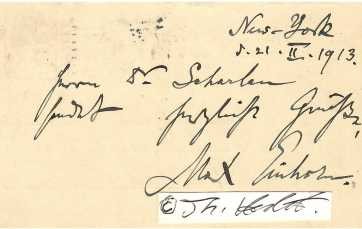 New-York
d. 21. II. 1913.
Herrn Dr Scharlau
sendet herzlich Grüße,
Max Einhorn.
©